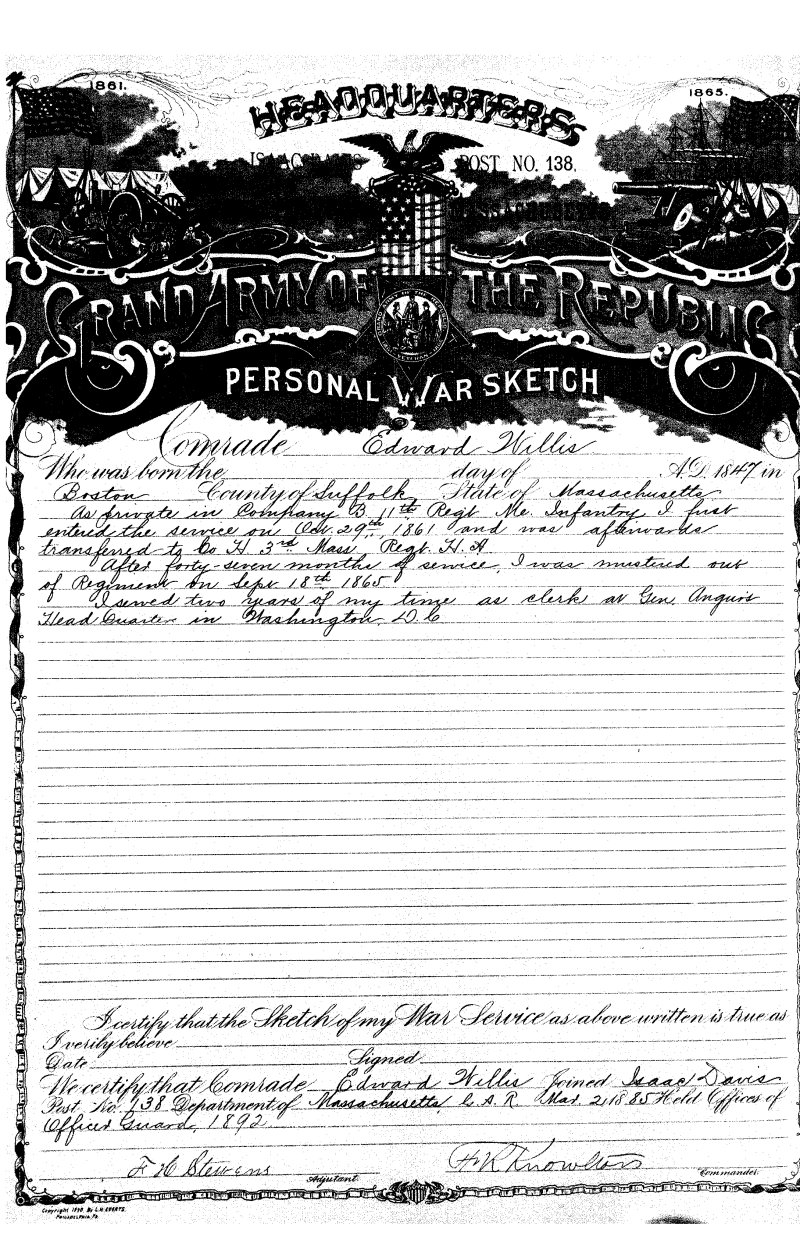 1861.
1865.
HEADQUARTERS
ISAAC DAVIS POST NO. 138,
MASSACHUSETTS
GRAND ARMY OF THE REPUBLIC
PERSONAL WAR SKETCH
Comrade Edward Willis
Who was born the day of A.D. 1847 in
Boston County of Suffolk State of Massachusetts
As private in Company B 11th Regt Me. Infantry I first
entered the service on Oct. 29th 1861 and was afterwards
transferred to Co H 3rd Mass Regt. H. A.
After forty-seven months of service, I was mustered out
of Regiment on Sept 18th 1865
I served two years of my time as clerk at Gen. Augur's
Head Quarters in Washington, D.C
I certify that the Sketch of my War Service as above written is true as
I verily believe
Date Signed
We certify that Comrade Edward Willis Joined Isaac Davis
Post No. 138 Department of Massachusetts, G. A. R Mar. 2, 1885 Held Offices of
Officer Guard, 1892
F H Stevens Adjutant. Knowlton Commander.
Copyright 1890, By L.H. EVERTS,
PHILADELPHIA, PA.